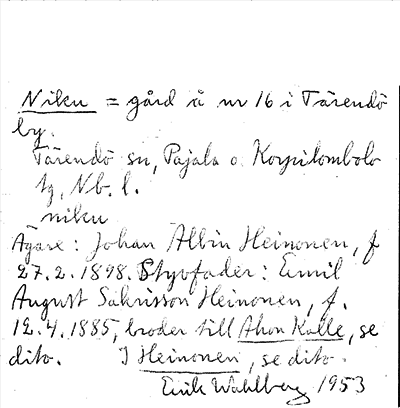 Niku = gård å nr 16 i Tärendö
by.
Tärendö sn, Pajala o. Korpilombolo
tg, Nb. l.
niku
Ägare: Johan Albin Heinonen, f
27.2.1898. Styvfader: Emil
August Sakrisson Heinonen, f.
12.4.1885, broder till Ahon Kalle, se
dito. J Heinonen, se dito.
Erik Wahlberg 1953